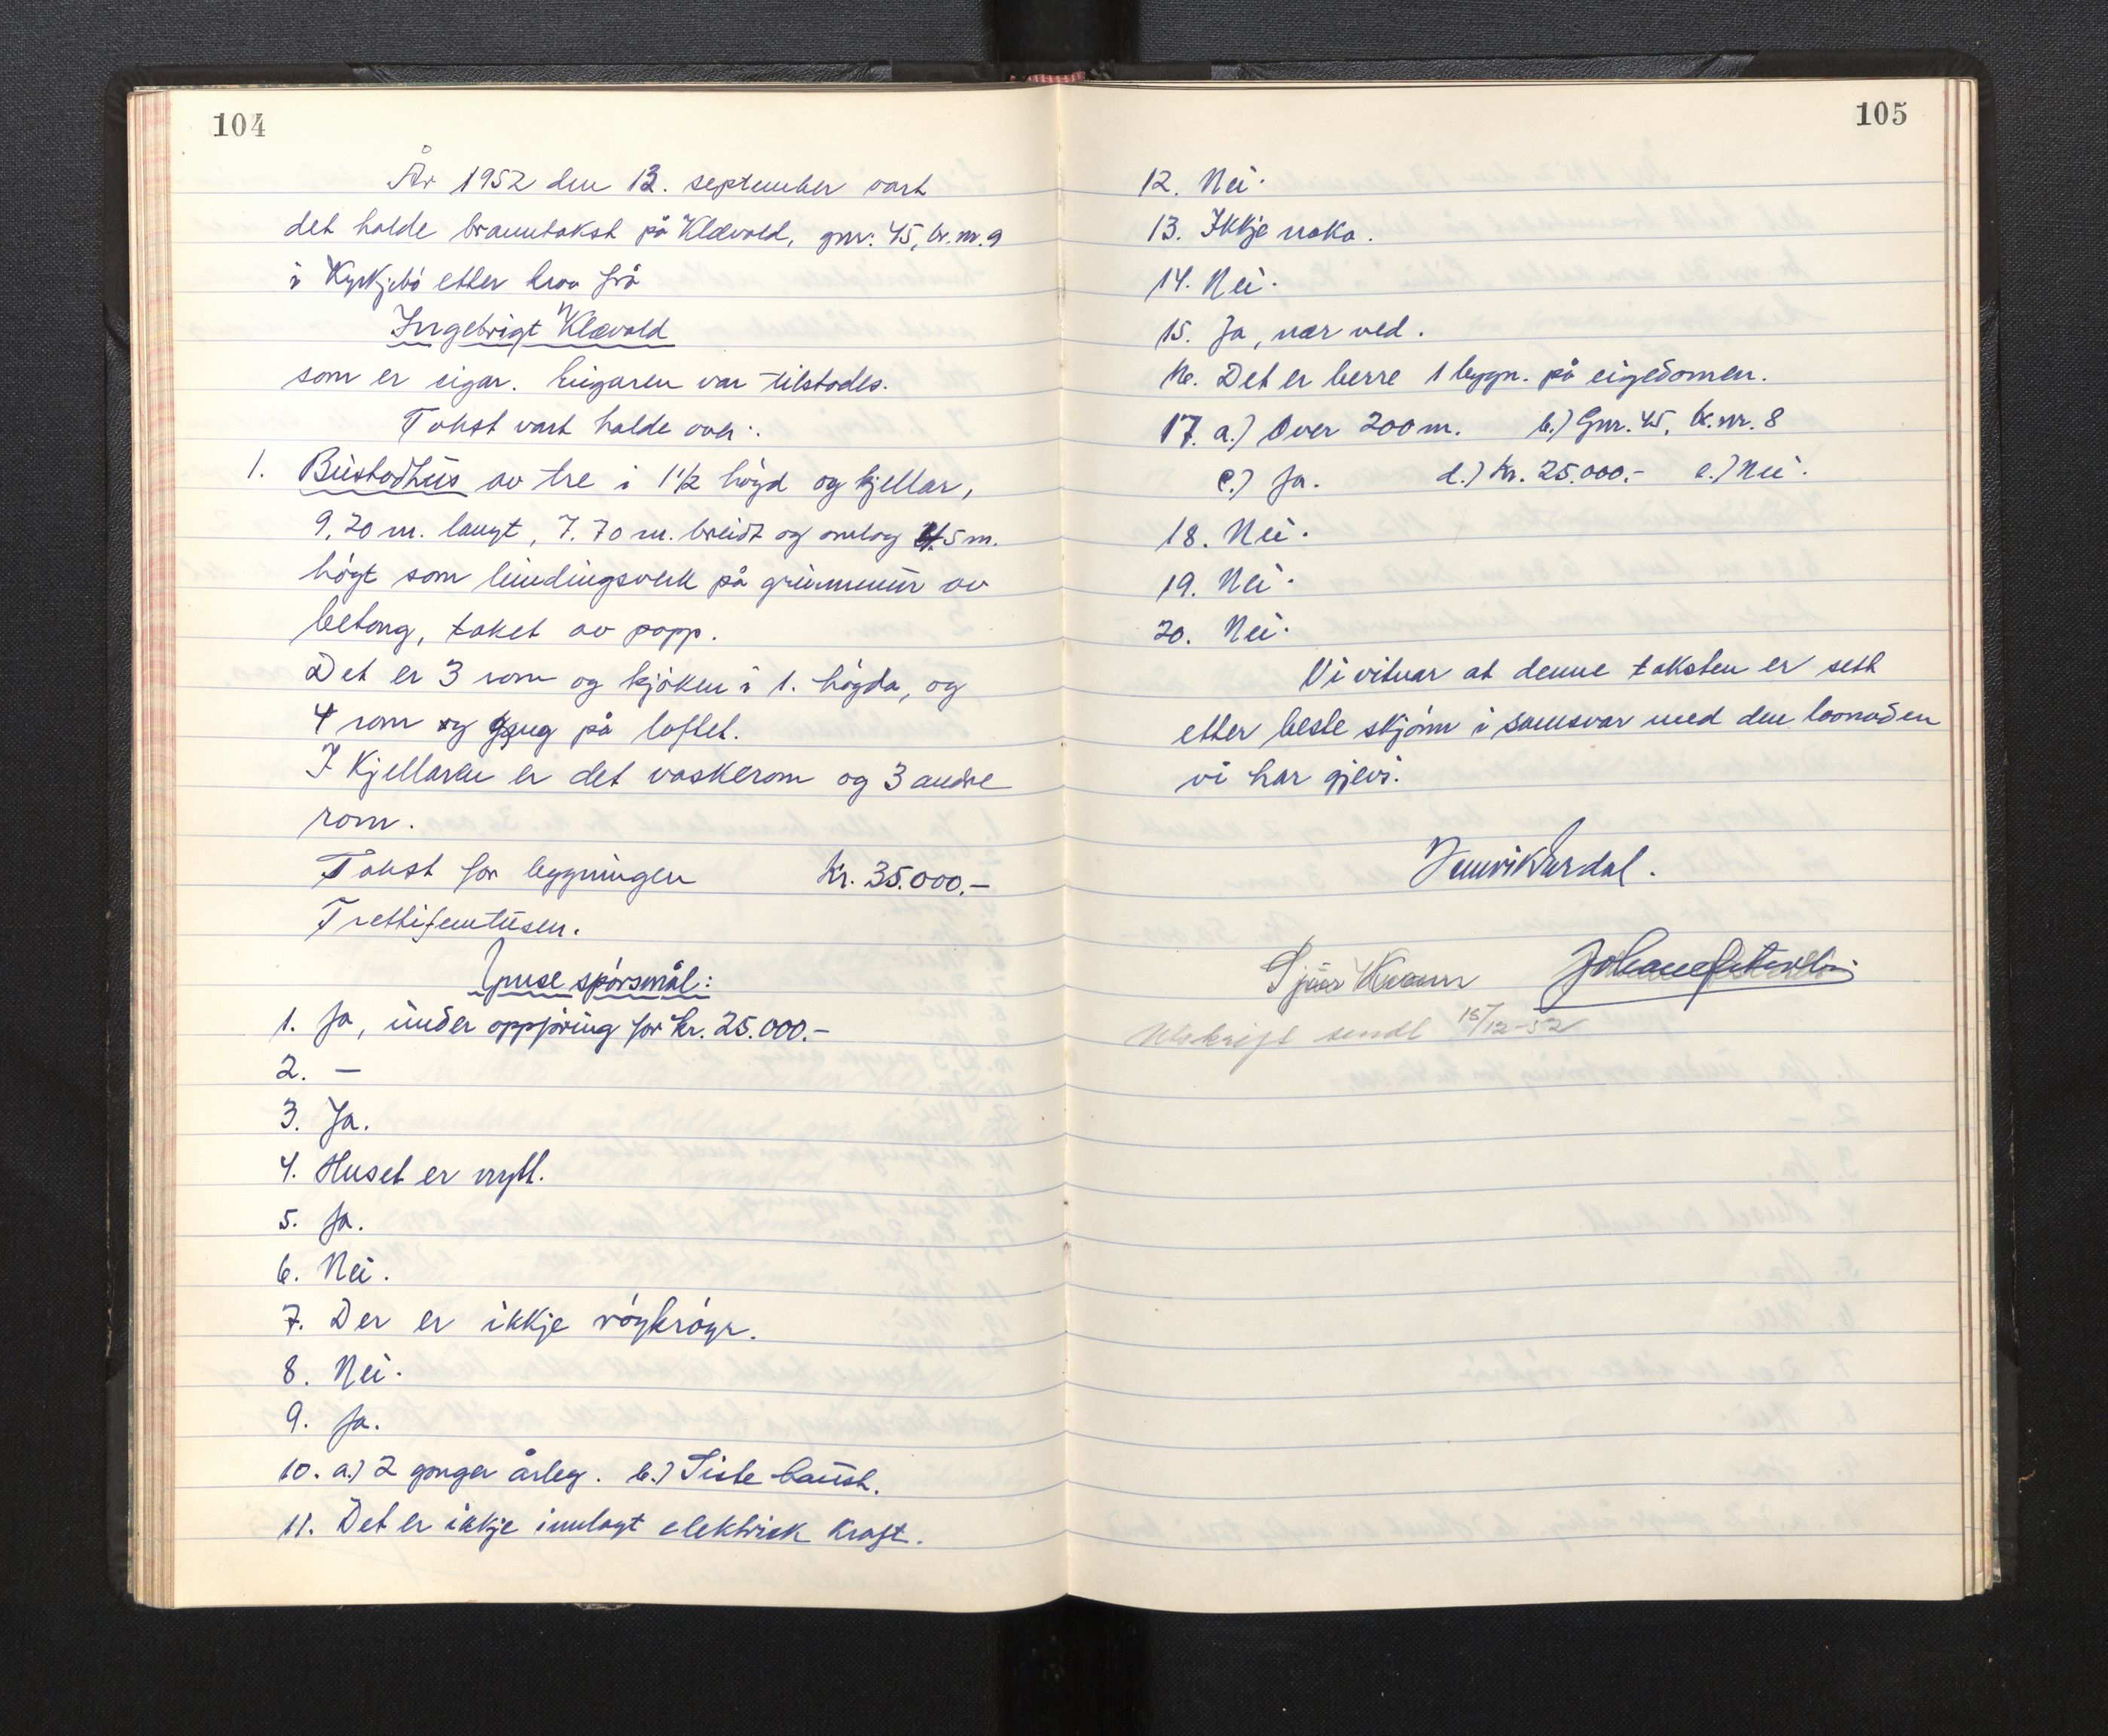 104
År 1952 den 13. september vart
det halde branntakst på Klævold, gnr. 45, br.nr. 9
i Kyrkjebø etter krav frå
Ingebrigt Klævold
som er eigar. Eigaren var tilstades.
Takst vart halde over:
1. Bustadhus av tre i 1 1/2 høgd og kjellar,
9,20 m. langt, 7.70 m. breidt og omlag 5 m.
høgt som bindingsverk på grunnmur av
betong, taket av papp.
Det er 3 rom og kjøken i 1. høgda, og
4 rom og gang på loftet.
I Kjellaren er det vaskerom og 3 andre
rom.
Takst for bygningen Kr. 35.000.-
Trettifemtusen.
Ymse spørsmål:
1. Ja, under oppføring for kr. 25.000.-
2. —
3. Ja.
4. Huset er nytt.
5. Ja.
6. Nei.
7. Der er ikkje røykrøyr.
8. Nei.
9. Ja.
10. a.) 2 gonger årleg. b.) Siste haust.
11. Det er ikkje innlagt elektrisk kraft.
105
12. Nei.
13. Ikkje noko.
14. Nei.
15. Ja, nær ved.
16. Det er berre 1 bygn. på eigedomen.
17. a.) Over 200 m. b.) Gnr. 45, br.nr. 8
c.) Ja. d.) Kr. 25.000.- e.) Nei.
18. Nei.
19. Nei.
20. Nei.
Vi vitnar at denne taksten er sett
etter beste skjønn i samsvar med den lovnaden
vi har gjevi.
Kvamm
Utskrift sendt 15/12-52